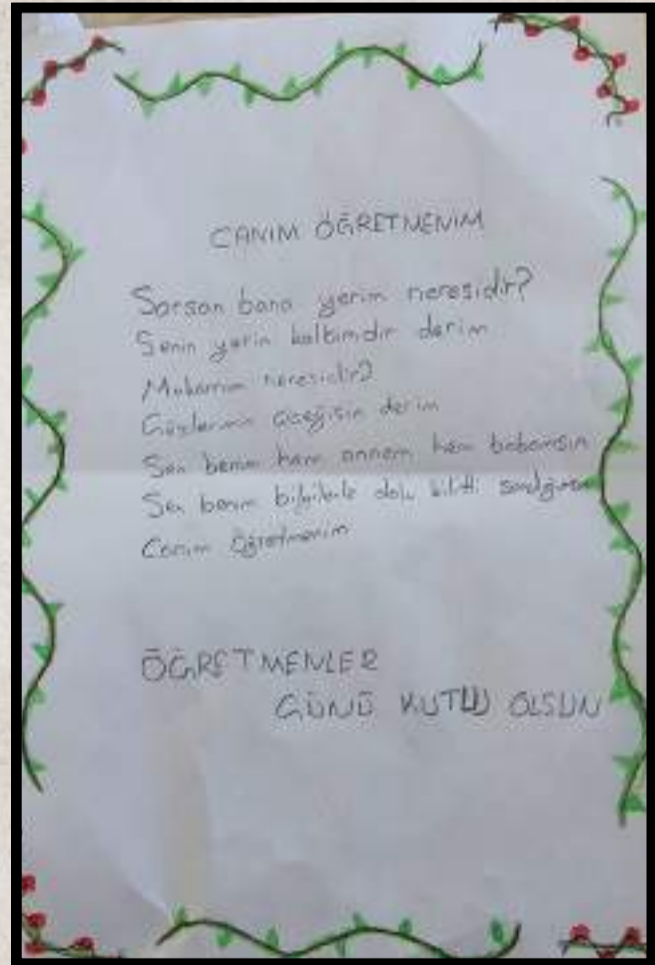 CANIM ÖĞRETMENİM
Sorsan bana yerim neresidir?
Senin yerin kalbimdir derim
Makamım neresidir?
Gözlerimin çiçeğisin derim
Sen benim hem annem hem babamsın
Sen benim bilgilerle dolu kilitli sandığımsın
Canım Öğretmenim
ÖĞRETMENLER
GÜNÜ KUTLU OLSUN